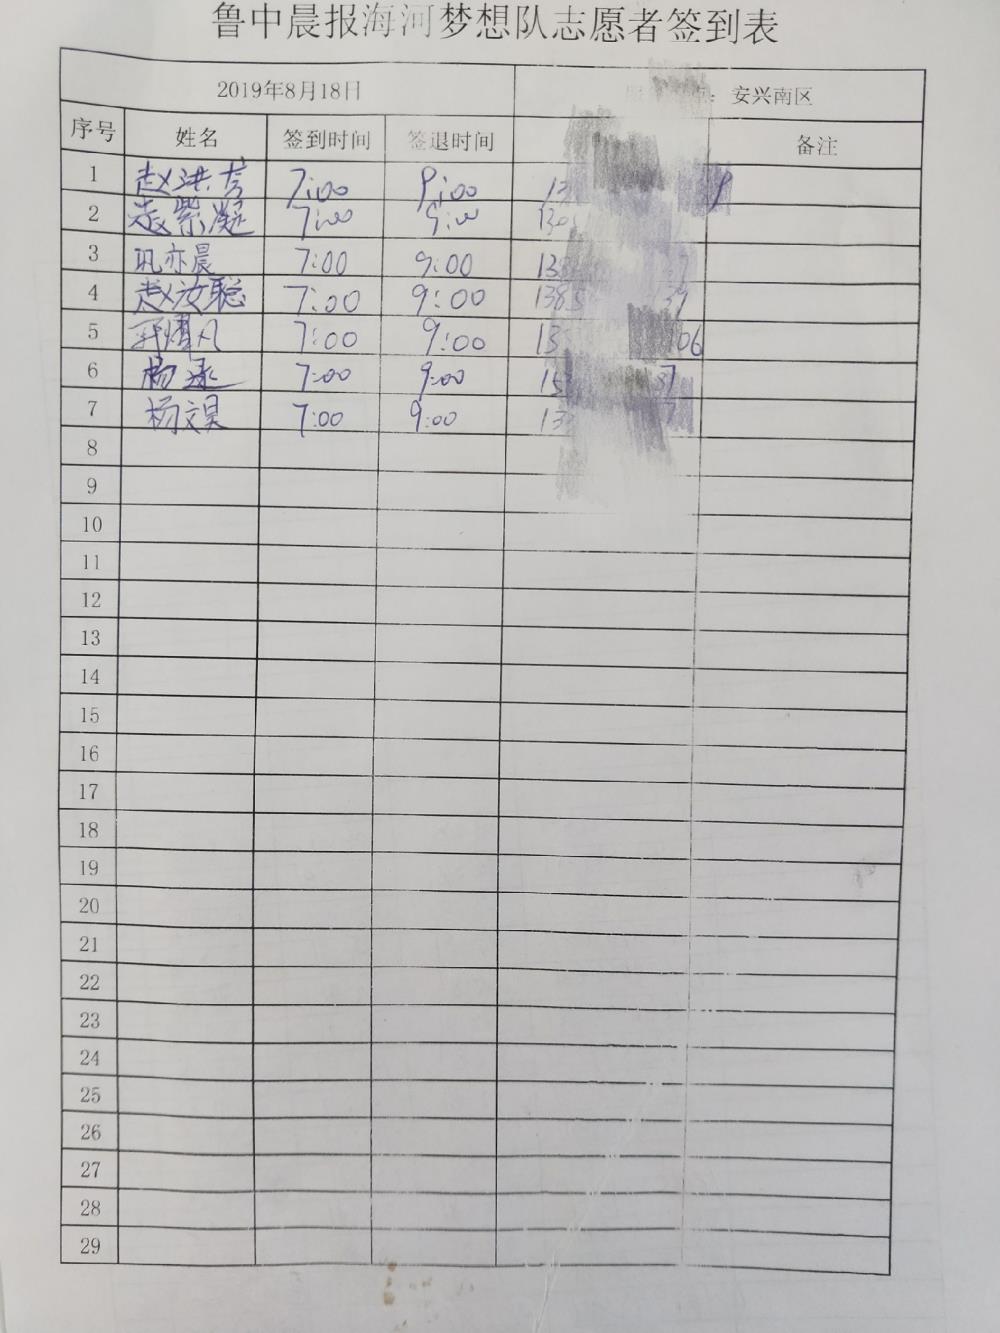 鲁中晨报海河梦想队志愿者签到表
2019年8月18日 安兴南区
序号 姓名 签到时间 签退时间 备注
1 赵洪 7:00 9:00
2 紫凝 7:00 9:00
3 巩亦晨 7:00 9:00
4 赵汝聪 7:00 9:00
5 7:00 9:00 06
6 杨 7:00 9:00
7 杨文昊 7:00 9:00
8
9
10
11
12
13
14
15
16
17
18
19
20
21
22
23
24
25
26
27
28
29